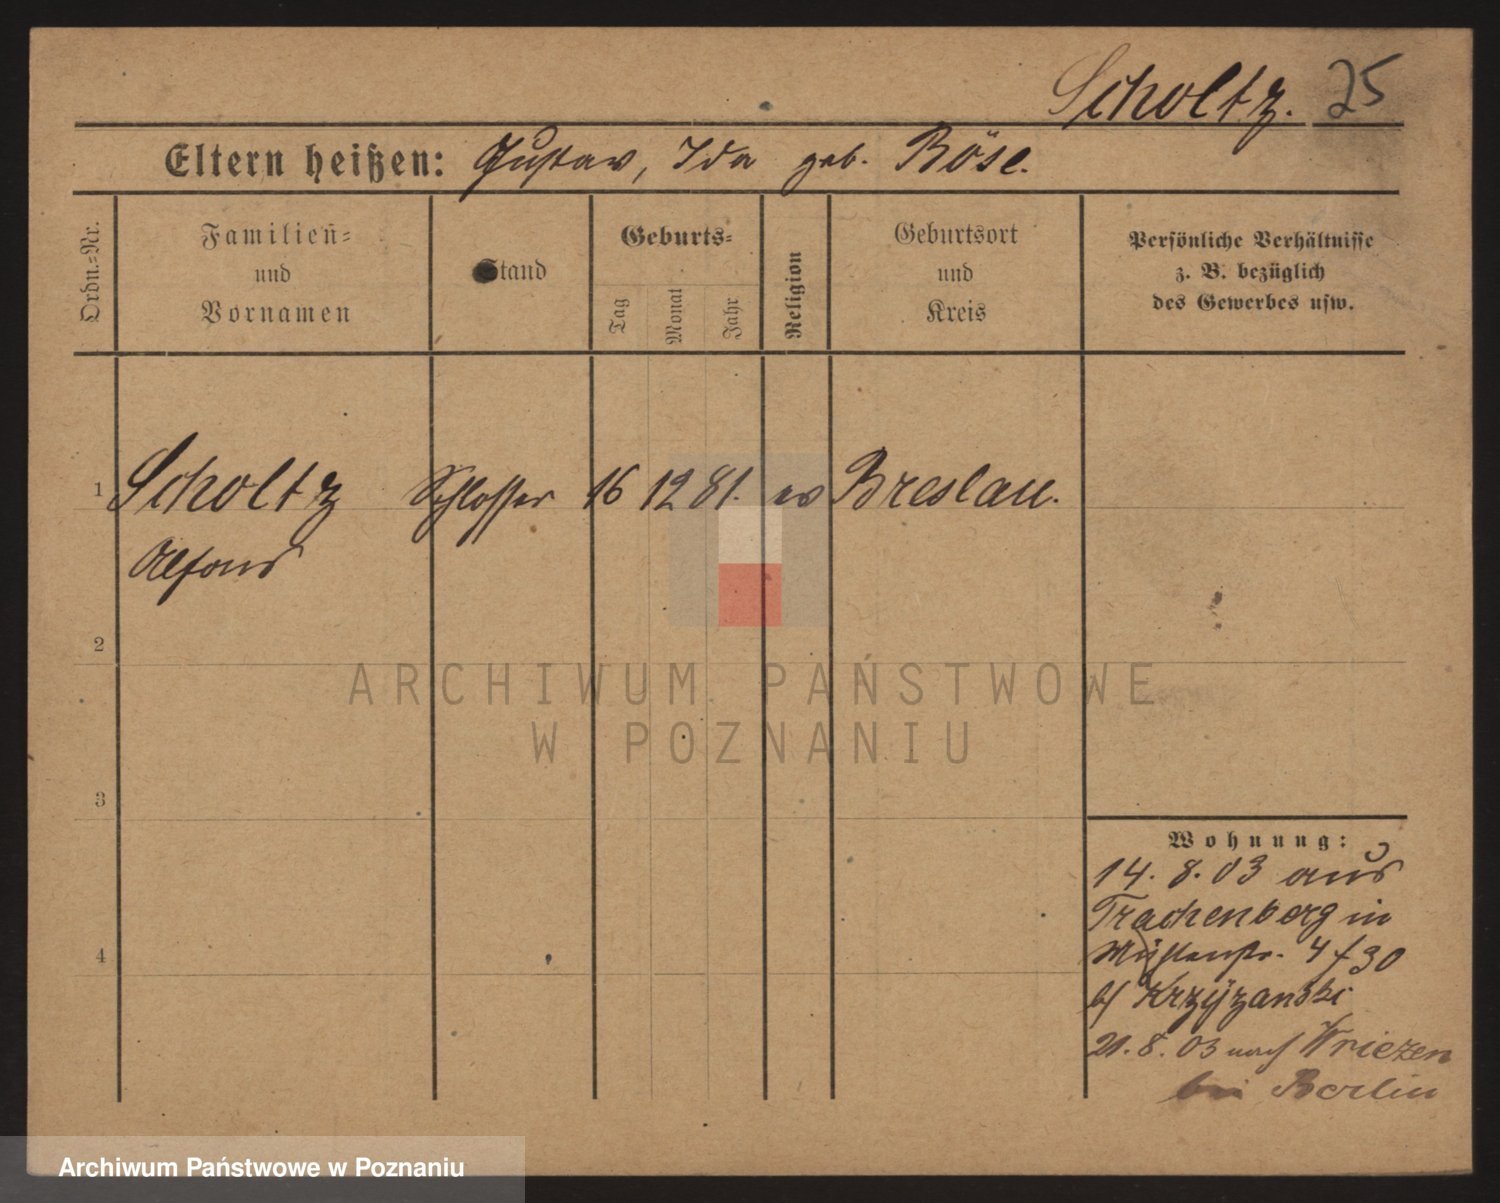 Scholtz. 25
Eltern heißen: Gustav, Ida geb. Böse.
Ordn.=Nr.
Familien= und Vornamen
Stand
Geburts=
Tag
Monat
Jahr
Religion
Geburtsort und Kreis
Persönliche Verhältnisse
z. B. bezüglich
des Gewerbes usw.
1 Scholtz Schlosser 16 12 81. ev Breslau.
Alfons
2
3
4
Wohnung:
14. 8. 03 aus
Trachenberg in
Mühlenstr. 4
b/ Krzyżanski
21. 8. 03 nach Wriezen
bei Berlin
ARCHIWUM PAŃSTWOWE
W POZNANIU
Archiwum Państwowe w Poznaniu